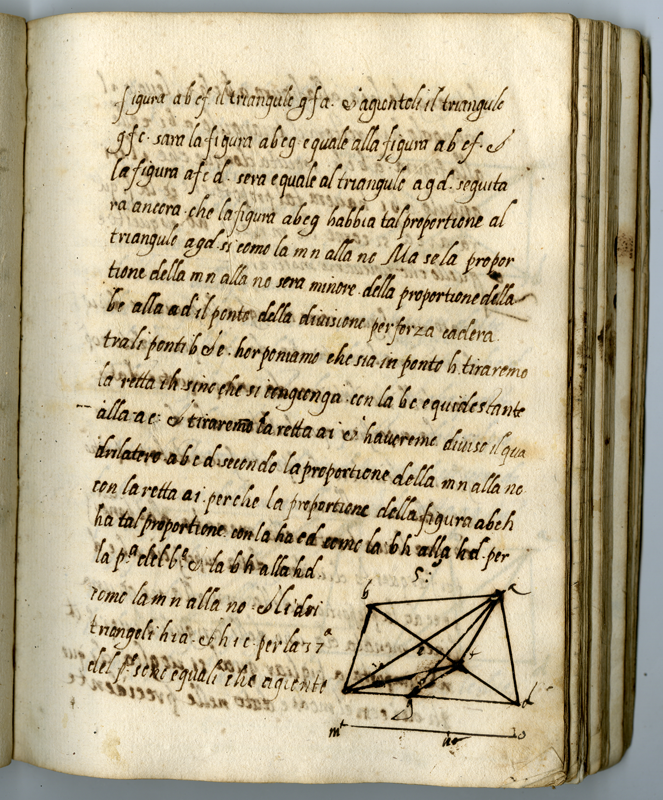 figura abcf il triangulo gfa. & agiontoli il triangulo
gfc. sara la figura abcg equale alla figura abcf. &
la figura afcd. sera equale al triangulo agd. seguita
ra ancora che la figura abcg habbia tal proportione al
triangulo agd. si como la mn alla no Ma se la propor
tione della mn alla no sera minore della proportione della
be alla ad il ponto della divisione per forza cadera
tra li ponti b & e. hor poniamo che sia in ponto h. tiraremo
la retta ih sino che si congionga con la bc equidestante
alla ae. & tiraremo la retta ai & haveremo diviso il qua
drilatero abcd secondo la proportione della mn alla no
con la retta ai. perche la proportione della figura abch
ha tal proportione con la hacd como la bh alla hd. per
la pª del 6º & la bh alla hd.
como la mn alla no. & li doi
triangoli hia. & hic. per la 37ª
del pº. sono equali che agionte
5:
b a
e
d
g
m n o